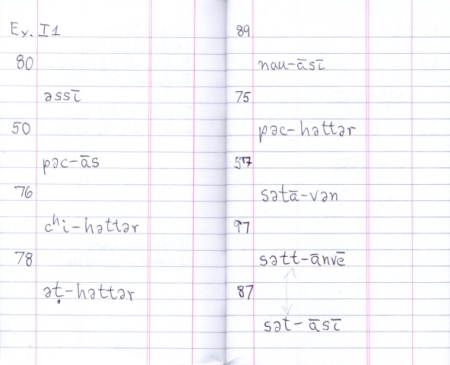 Ex. I1
80
əssī
50
pəc-ās
76
cʰi-həttər
78
əṭ-həttər
89
nau-āsī
75
pəc-həttər
57
sətā-vən
97
sətt-ānvē
87
sət-āsī